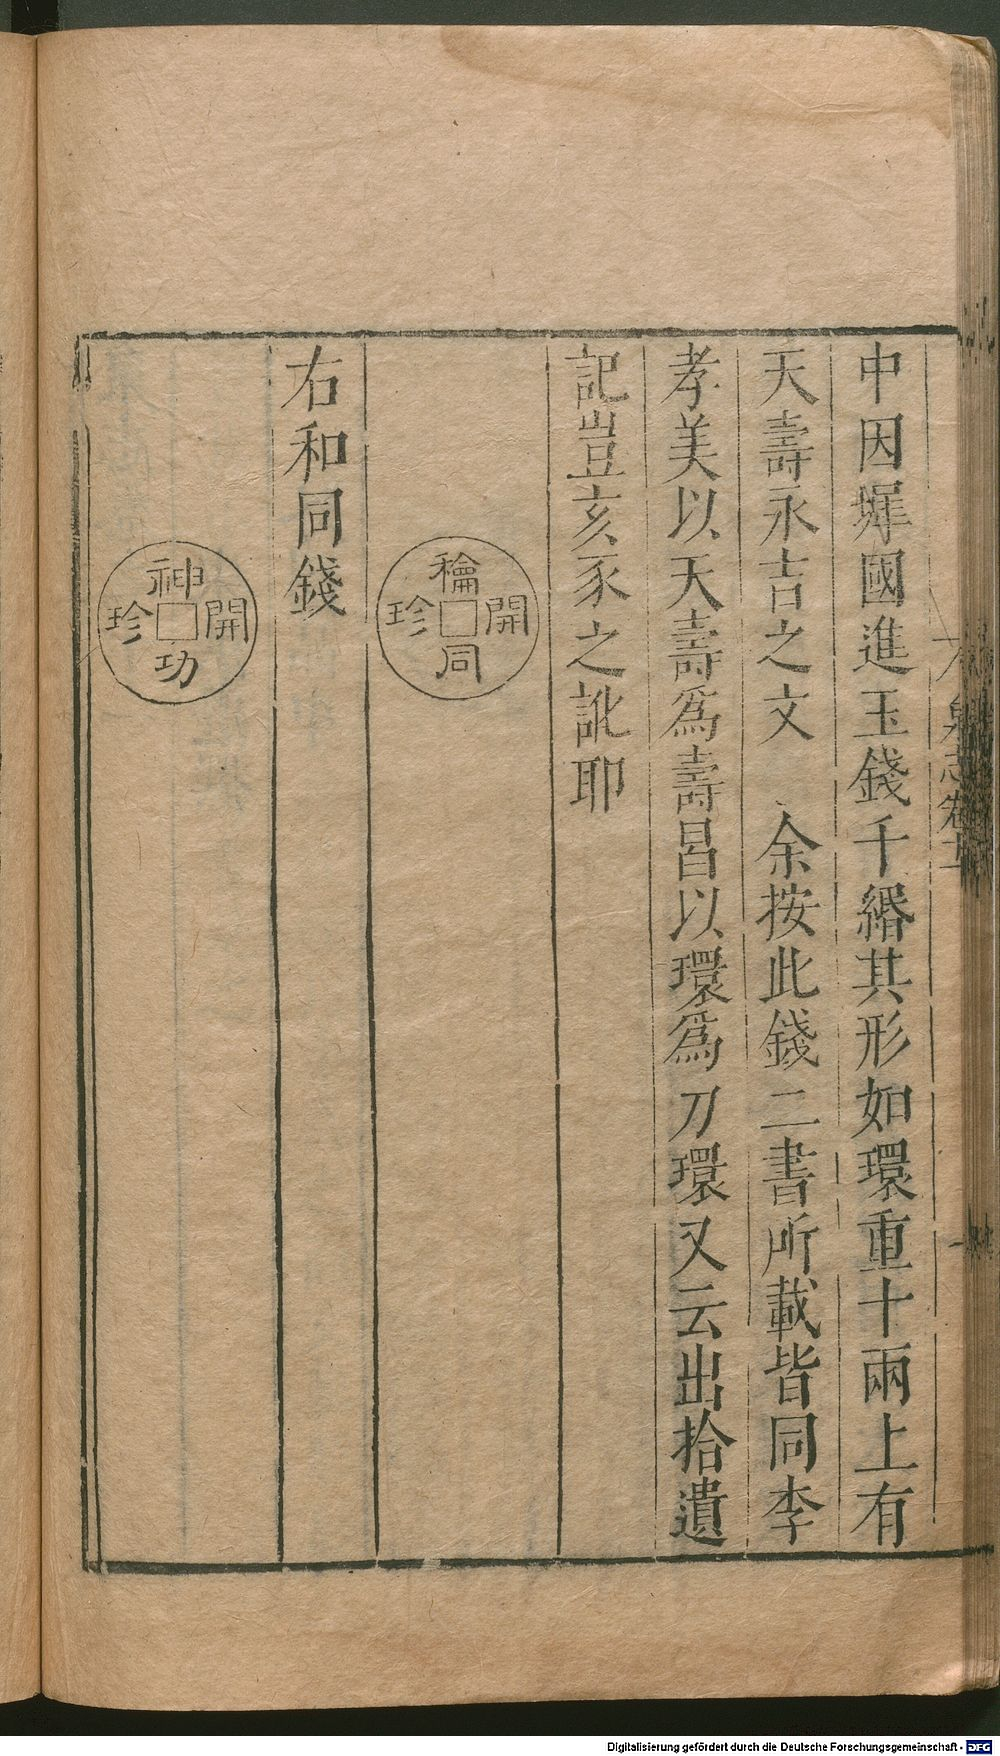 中因墀國進玉錢千緡其形如環重十兩上有
天壽永吉之文　余按此錢二書所載皆同李
孝美以天壽為壽昌以環為刀環又云出拾遺
記豈亥豕之訛耶
開珍
同
右和同錢
神開珍功
泉志卷
Digitalisierung gefördert durch die Deutsche Forschungsgemeinschaft - DFG